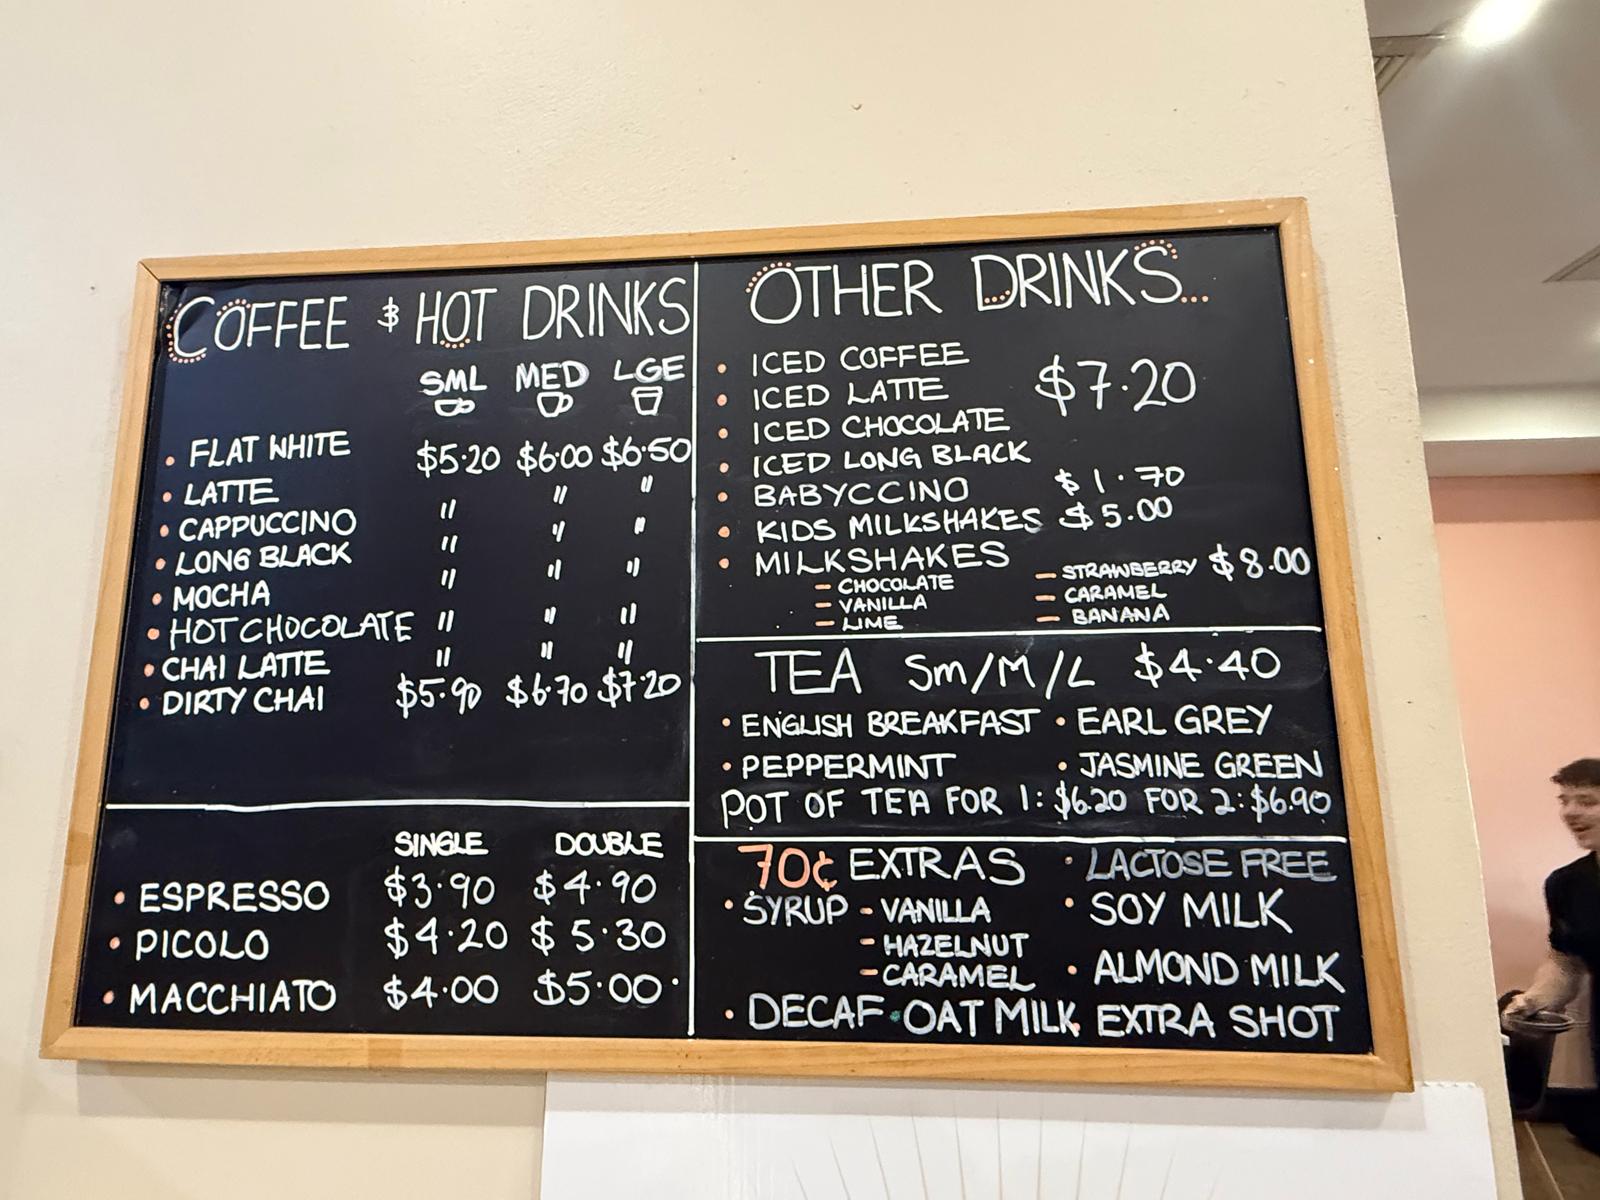 COFFEE & HOT DRINKS
SML MED LGE
• FLAT WHITE $5.20 $6.00 $6.50
• LATTE " " "
• CAPPUCCINO " " "
• LONG BLACK " " "
• MOCHA " " "
• HOT CHOCOLATE " " "
• CHAI LATTE " " "
• DIRTY CHAI $5.90 $6.70 $7.20
SINGLE DOUBLE
• ESPRESSO $3.90 $4.90
• PICOLO $4.20 $5.30
• MACCHIATO $4.00 $5.00
OTHER DRINKS...
• ICED COFFEE
• ICED LATTE $7.20
• ICED CHOCOLATE
• ICED LONG BLACK
• BABYCCINO $1.70
• KIDS MILKSHAKES $5.00
• MILKSHAKES $8.00
– CHOCOLATE – STRAWBERRY
– VANILLA – CARAMEL
– LIME – BANANA
TEA Sm/M/L $4.40
• ENGLISH BREAKFAST • EARL GREY
• PEPPERMINT • JASMINE GREEN
POT OF TEA FOR 1: $6.20 FOR 2: $6.90
70¢ EXTRAS • LACTOSE FREE
• SYRUP – VANILLA • SOY MILK
– HAZELNUT
– CARAMEL • ALMOND MILK
• DECAF • OAT MILK • EXTRA SHOT